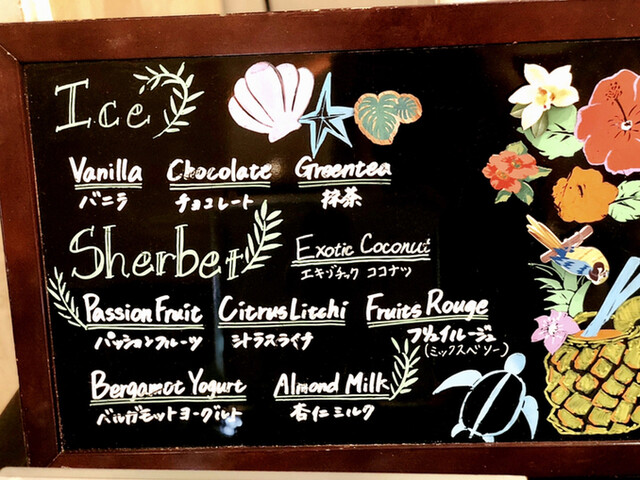 Ice
Vanilla Chocolate Greentea
バニラ チョコレート 抹茶
Sherbet Exotic Coconut
エキゾチック ココナツ
Passion Fruit Citrus Litchi Fruits Rouge
パッションフルーツ シトラスライチ フリュイルージュ
(ミックスベリー)
Bergamot Yogurt Almond Milk
バルガモットヨーグルト 杏仁ミルク